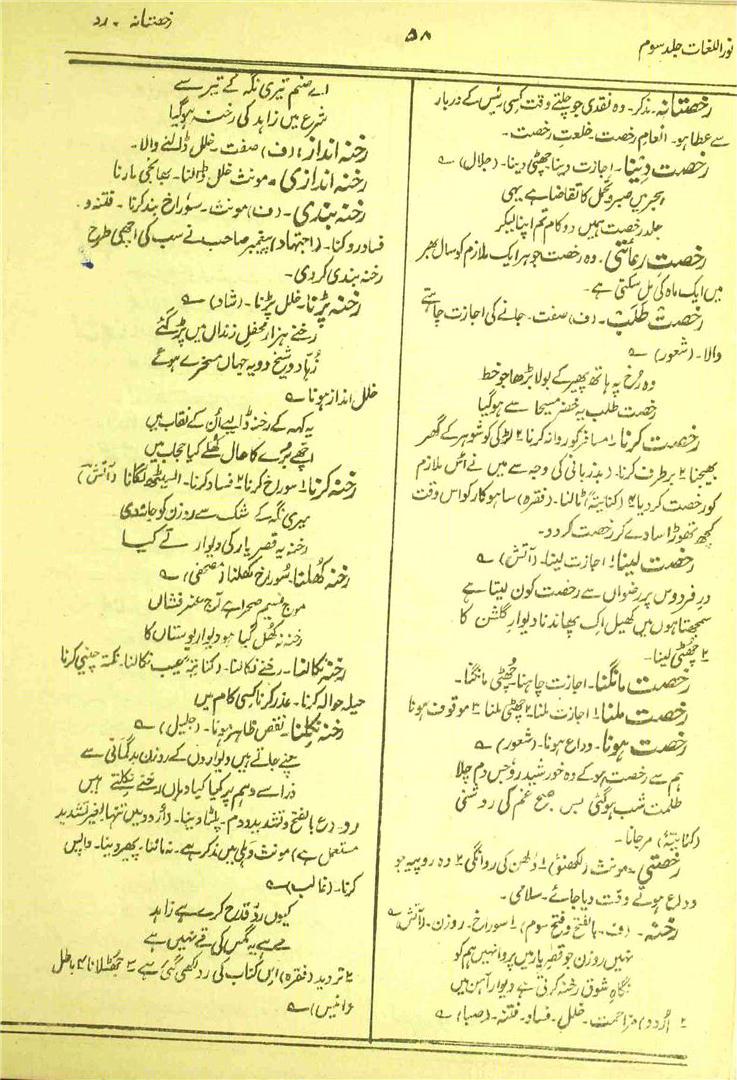 نور اللغات جلد سوم
۵۸
رخصتانہ ۔ رد
رخصتانہ۔ مذکر۔ وہ نقدی جو چلتے وقت کسی رئیس کے دربار
سے عطا ہو۔ انعام رخصت۔ خلعتِ رخصت۔
رخصت دینا۔ اجازت دینا۔ چھٹی دینا۔ (جلال) ؎
ہجر میں صبر و تحمل کا تقاضا ہے یہی
جلد رخصت ہمیں دو کام تم اپنا لیکر
رخصت رعائتی۔ وہ رخصت جو ہر ایک ملازم کو سال بھر
میں ایک ماہ کی مل سکتی ہے۔
رخصت طلب۔ (ف) صفت۔ جانے کی اجازت چاہنے
والا۔ (شعور) ؎
وہ رُخ پہ ہاتھ پھیر کے بولا بڑھا جو خط
رخصت طلب یہ خضر مسیحا سے ہو گیا
رخصت کرنا ۱ مسافر کو روانہ کرنا ۲ لڑکی کو شوہر کے گھر
بھیجنا ۳ برطرف کرنا۔ (بدزبانی کی وجہ سے میں نے اس ملازم
کو رخصت کر دیا ۴ (کنایۃً) ٹالنا۔ (فقرہ) ساہوکار کو اس وقت
کچھ تھوڑا سا دے کر رخصت کر دو۔
رخصت لینا ۱ اجازت لینا۔ (آتش) ؎
درِ فردوس پر رضواں سے رخصت کون لیتا ہے
سمجھتا ہوں میں کھیل اک پھاندنا دیوارِ گلشن کا
۲ چھٹی لینا۔
رخصت مانگنا۔ اجازت چاہنا۔ چھٹی مانگنا۔
رخصت ملنا ۱ اجازت ملنا ۲ چھٹی ملنا ۳ موقوف ہونا
رخصت ہونا۔ وداع ہونا۔ (شعور) ؎
ہم سے رخصت ہو کے وہ خورشید رو جس دم چلا
ظلمتِ شب ہو گئی بس صبح غم کی روشنی
(کنایۃً) مر جانا۔
رخصتی۔ مونث (لکھنؤ) ۱ دلھن کی روانگی ۲ وہ روپیہ جو
وداع ہوتے وقت دیا جائے۔ سلامی۔
رخنہ۔ (ف۔ بالفتح و فتح سوم) ۱ سوراخ۔ روزن۔ (آتش) ؎
نہیں روزن جو قصرِ یار میں پروا نہیں ہم کو
نگاہِ شوق رخنہ کرتی ہے دیوارِ آہن میں
۲ (اُردو) مزاحمت۔ خلل۔ فساد۔ فتنہ۔ (صبا) ؎
اے صنم تیری نگہ کے تیر سے
شرع میں زاہد کی رخنہ ہو گیا
رخنہ انداز۔ (ف) صفت۔ خلل ڈالنے والا۔
رخنہ اندازی۔ مونث خلل ڈالنا۔ بھانجی مارنا
رخنہ بندی۔ (ف) مونث۔ سوراخ بند کرنا۔ فتنہ و
فساد روکنا۔ (اجتہاد) پیغمبر صاحب نے سب کی اچھی طرح
رخنہ بندی کر دی۔
رخنہ پڑنا۔ خلل پڑنا۔ (شاد) ؎
رخنے ہزار محفلِ زنداں میں پڑ گئے
زُہاد و شیخ دو یہ جہاں مسخرے ہوئے
خلل انداز ہونا ؎
یہ کہہ کے رخنہ ڈالیے اُن کے نقاب میں
اچھے بُرے کا حال کھُلے کیا حجاب میں
رخنہ کرنا ۱ سوراخ کرنا ۲ فساد کرنا۔ اڑسیٹھ لگانا (آتش)
میری نگہ کے شک سے روزن کو جا نہ دی
رخنہ یہ قصرِ یار کی دیوار نے کیا
رخنہ کھُلنا۔ سُوراخ کھلنا (مصحفی) ؎
موجِ نسیمِ صحرا ہے آج عنبر فشاں
رخنہ نہ کھُل گیا ہو دیوارِ بوستاں کا
رخنہ نکالنا۔ رخنے نکالنا۔ (کنایۃً) عیب نکالنا۔ نکتہ چینی کرنا
حیلہ حوالہ کرنا۔ عذر کرنا کسی کام میں
رخنہ نکلنا۔ نقص ظاہر ہونا۔ (جلیل) ؎
چُنے جاتے ہیں دیواروں کے روزن بدگمانی سے
ذرا سے وہم پر کیا کیا وہاں رخنے نکلتے ہیں
رد۔ (ع بالفتح و تشدید دوم۔ پلٹا دینا۔ (اُردو میں تنہا بغیر تشدید
مستعمل ہے) مونث و دہلی میں مذکر ہے۔ نہ ماننا۔ پھیر دینا۔ واپس
کرنا۔ (غالب) ؎
کیوں ردِّ قدح کرے ہے زاہد
مے ہے یہ مگس کی قے نہیں ہے
۲ تردید (فقرہ) اس کتاب کی رد لکھی گئی ہے ۳ جھٹلانا ۴ باطل
(انیس) ؎